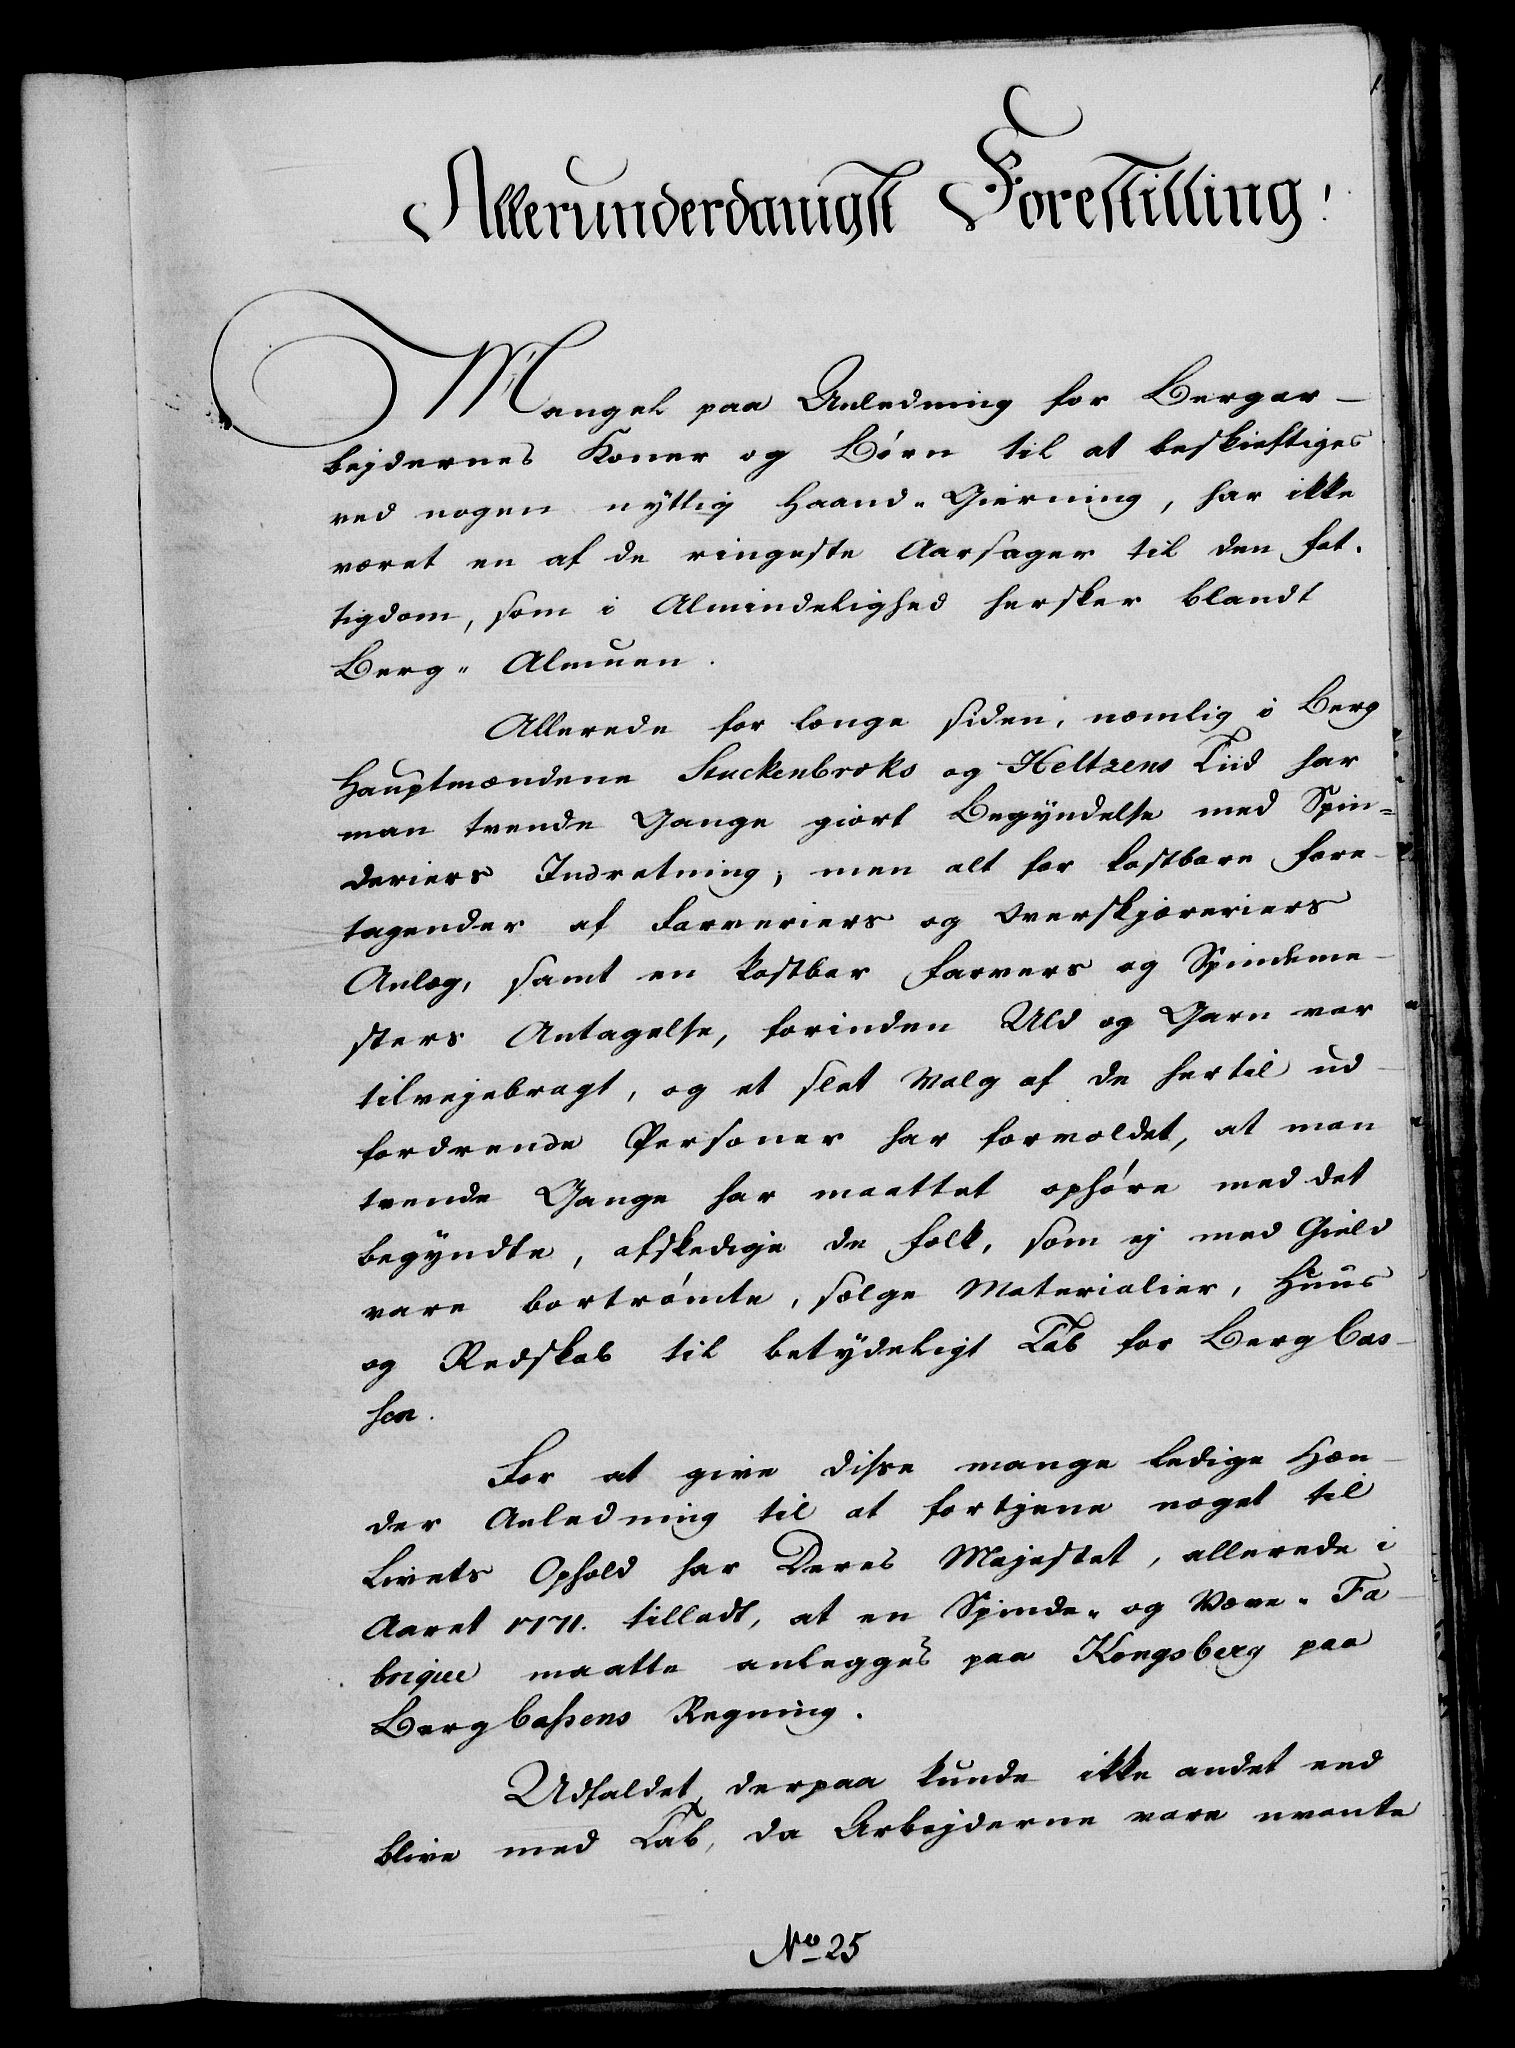 Allerunderdanigst Forestilling!
Mangel paa Anledning for Bergar-
bejdernes Koner og Börn til at beskieftiges
ved nogen nyttig Haand-Gierning, har ikke
været en af de ringeste Aarsager til den Fat-
tigdom, som i Almindelighed hersker blandt
Berg-Almuen.
Allerede for længe siden, nemlig i Berg
Hauptmændene Stuckenbroks og Heltzens Tiid har
man tvende Gange giort Begyndelse med Spin-
deriers Indretning, men alt for kostbare Fore-
tagender af Farveriers og Overskjæreriers
Anlæg, samt en kostbar Farvers og Spindeme-
sters Antagelse, forinden Uld og Garn var
tilvejebragt, og et slet Valg af de hertil ud-
fordrende Personer har forvoldet, at man
tvende Gange har maattet ophöre med det
begyndte, afskedige de Folk, som ej med Gield
vare bortrömte, sælge Materialier, Huus
og Redskab til betydeligt Tab for Berg Cas-
sen.
For at give disse mange ledige Hæn-
der Anledning til at fortjene noget til
Livets Ophold har Deres Majestet, allerede i
Aaret 1771. tilladt, at en Spinde- og Væve-Fa-
brique maatte anlegges paa Kongsberg paa
Berg Cassens Regning.
Udfaldet derpaa kunde ikke andet end
blive med Tab, da Arbejderne vare uvante
No 25